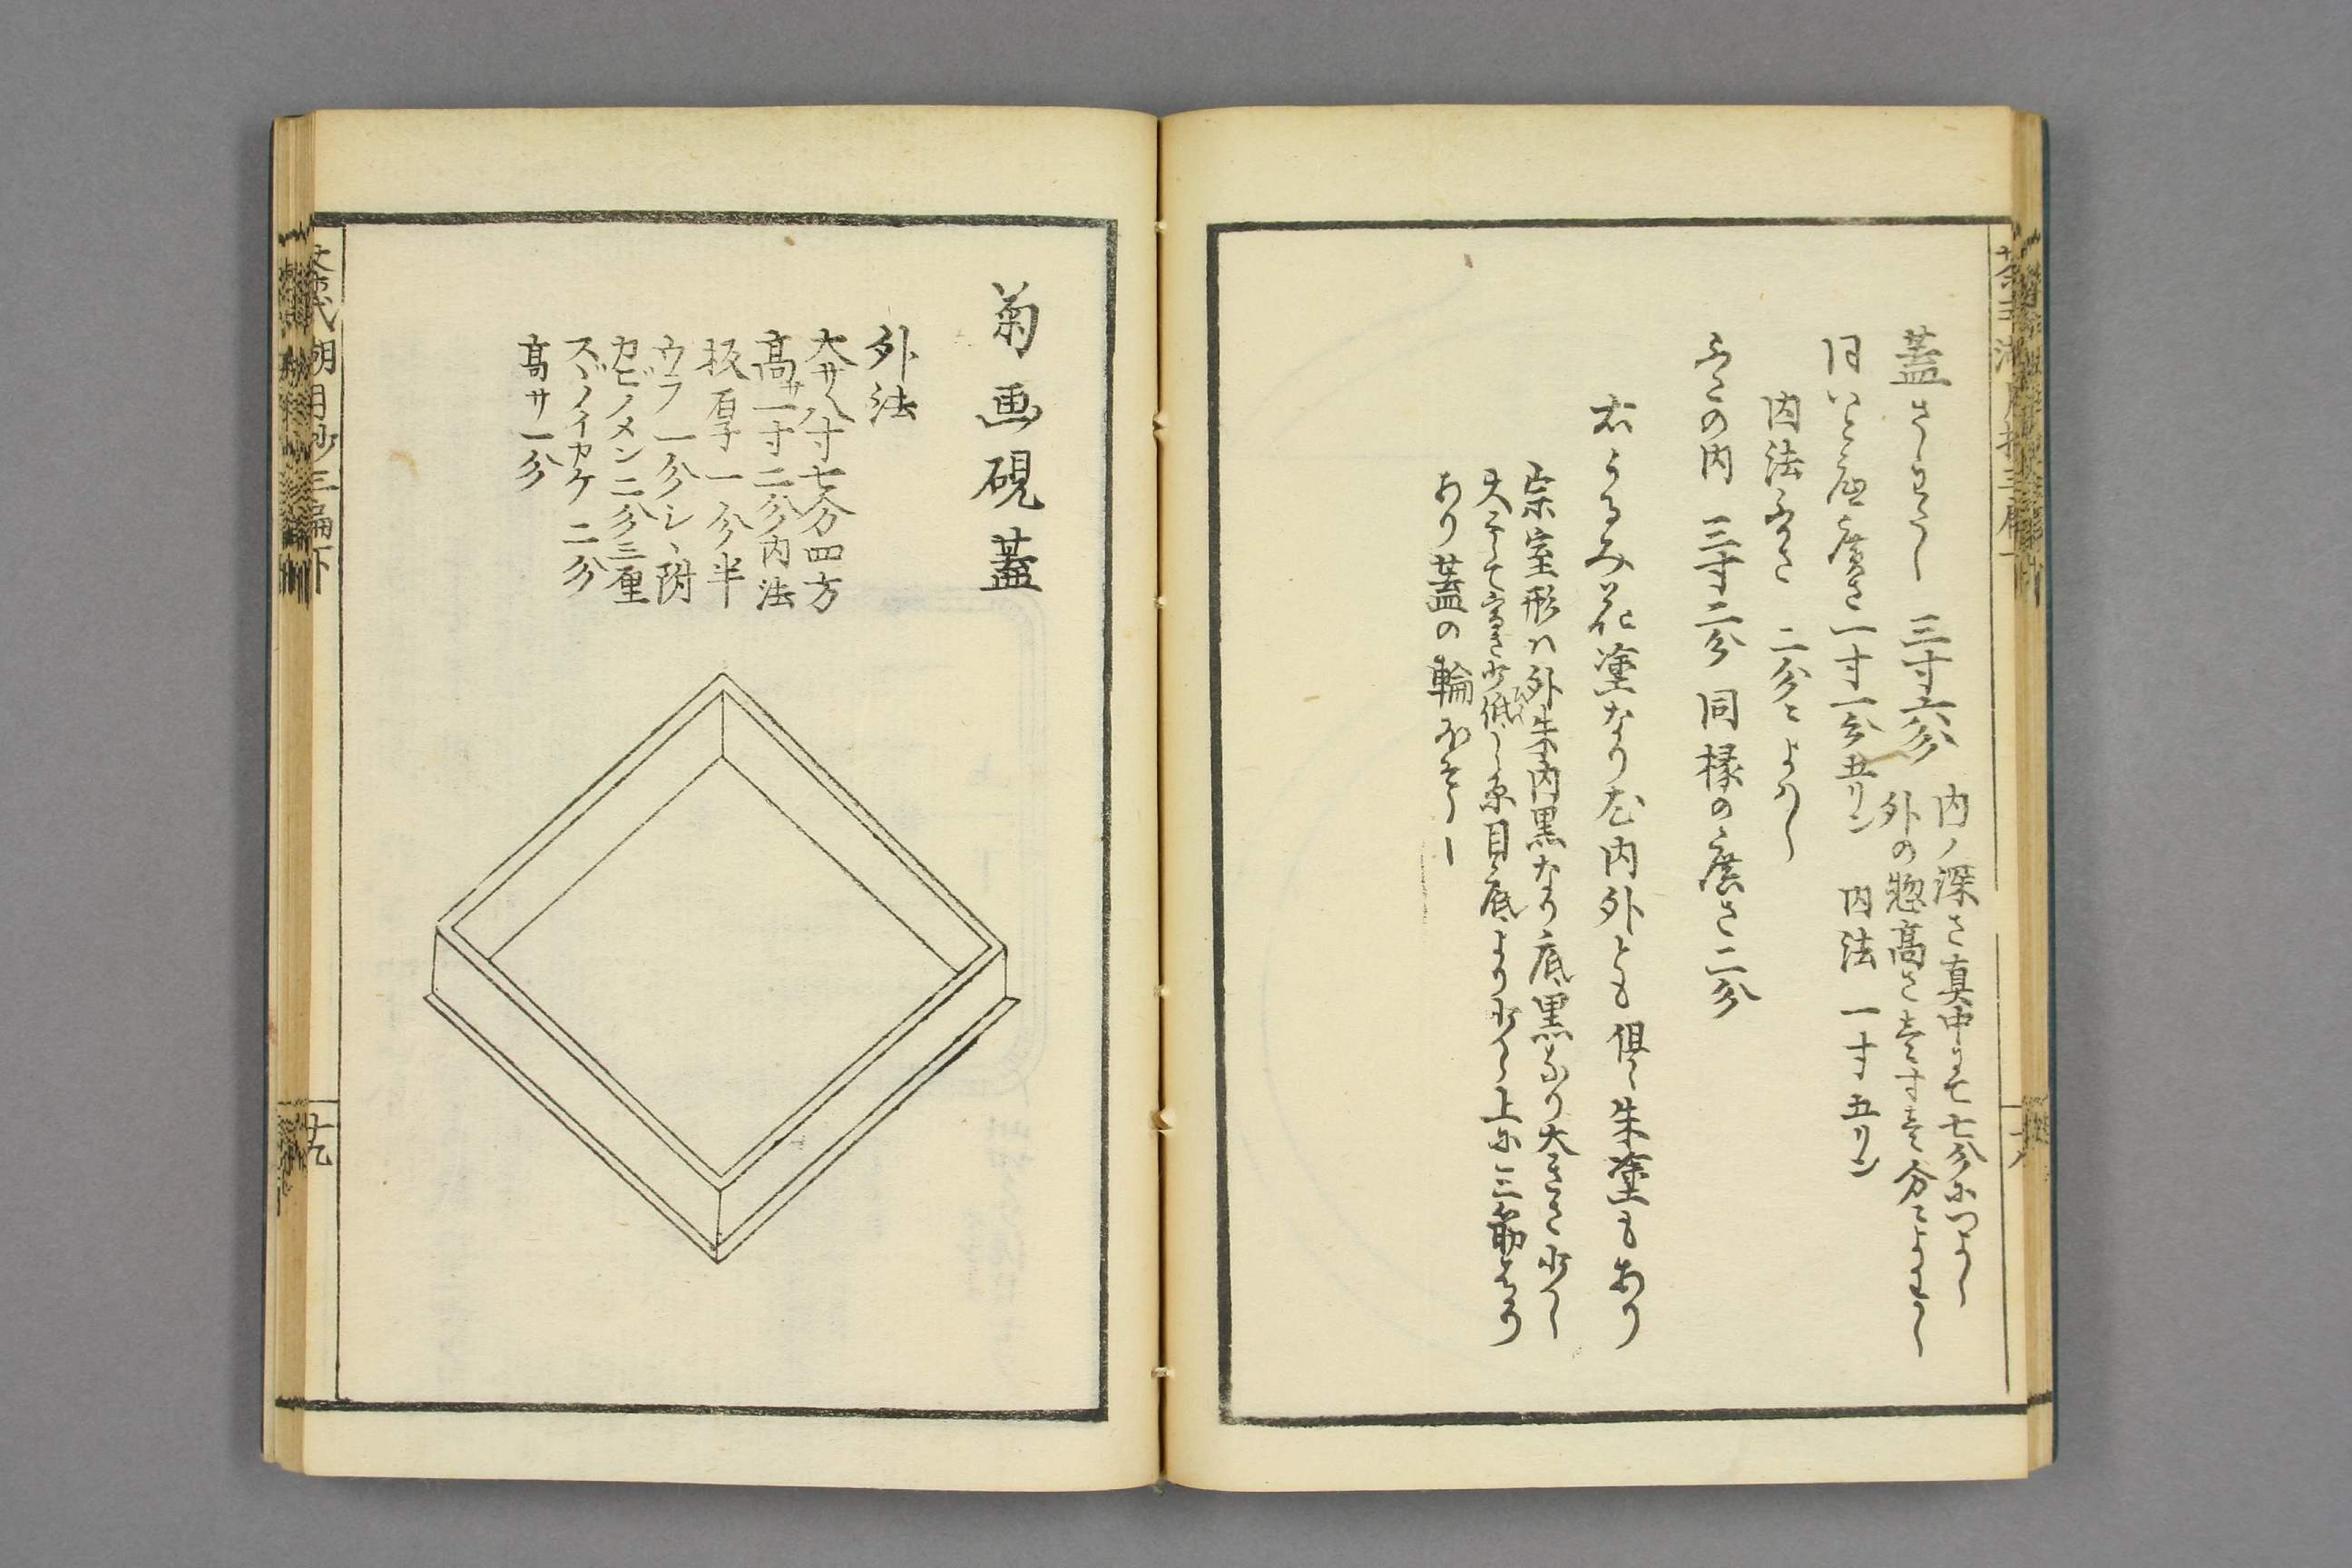 蓋さしわたし　三寸六分
内ノ深さ真中にて七分につよし
外の惣高さ壱寸壱分によわし
同いと底広さ一寸一分五リン　内法　一寸五リン
内法ふかさ　二分によわし
ふたの内　三寸二分　同様の広さ二分
右うるみ花塗なり尤内外とも倶に朱塗もあり
宗室形ハ外朱内黒なり底黒なり大きさ少し
大にして高さ少低し糸目底より少し上に三筋計り
あり蓋の輪ほそし
菊画硯蓋
外法
大サ八寸七分四方
高サ一寸二分内法
板厚一分半
ウフ一分シヽ附
カビノメン二分三厘
スヾノイカケ二分
高サ一分
茶式湖月抄三編下
廿九